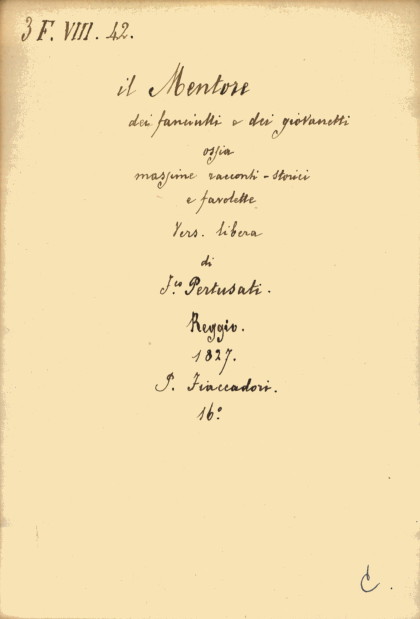 3 F. VIII. 42.
il Mentore
dei fanciulli e dei giovanetti
ossia
massime racconti-storici
e favolette
Vers. libera
di
F.co Pertusati.
Reggio.
1827.
P. Fiaccadori.
16°
C.